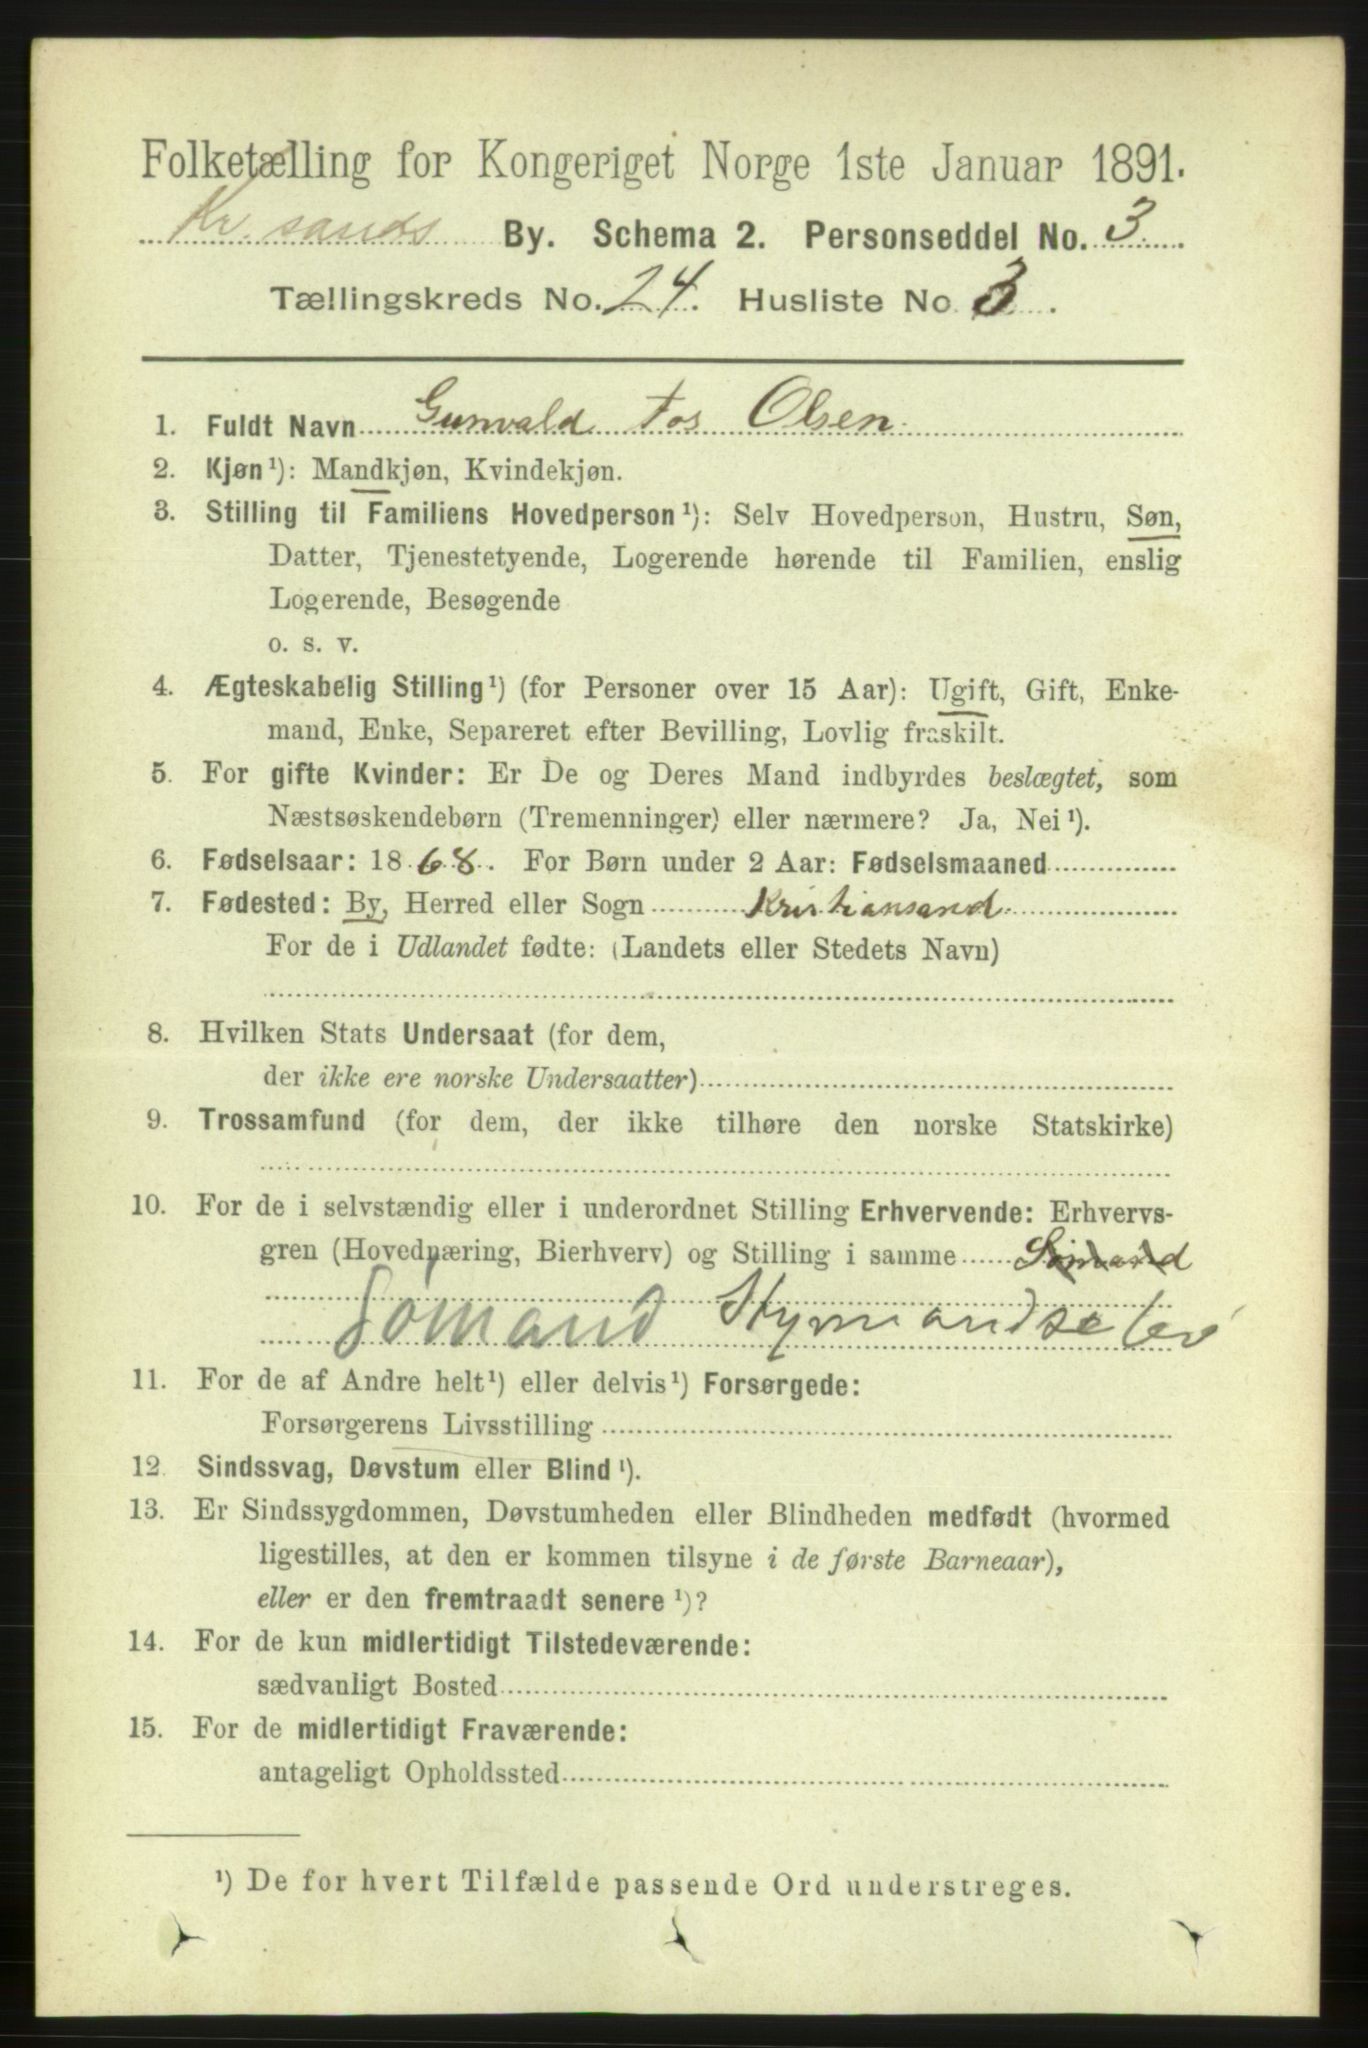 Folketælling for Kongeriget Norge 1ste Januar 1891.
Kr.sands By. Schema 2. Personseddel No. 3
Tællingskreds No. 24. Husliste No. 3.
1. Fuldt Navn Gunvald Fos Olsen.
2. Kjøn¹): Mandkjøn, Kvindekjøn.
3. Stilling til Familiens Hovedperson¹): Selv Hovedperson, Hustru, Søn,
Datter, Tjenestetyende, Logerende hørende til Familien, enslig
Logerende, Besøgende
o. s. v.
4. Ægteskabelig Stilling¹) (for Personer over 15 Aar): Ugift, Gift, Enke-
mand, Enke, Separeret efter Bevilling, Lovlig fraskilt.
5. For gifte Kvinder: Er De og Deres Mand indbyrdes beslægtet, som
Næstsøskendebørn (Tremenninger) eller nærmere? Ja, Nei¹).
6. Fødselsaar: 1868. For Børn under 2 Aar: Fødselsmaaned
7. Fødested: By, Herred eller Sogn Kristiansand.
For de i Udlandet fødte: (Landets eller Stedets Navn)
8. Hvilken Stats Undersaat (for dem,
der ikke ere norske Undersaatter)
9. Trossamfund (for dem, der ikke tilhøre den norske Statskirke)
10. For de i selvstændig eller i underordnet Stilling Erhvervende: Erhvervs-
gren (Hovednæring, Bierhverv) og Stilling i samme Sømand
Sømand Styrmandselev
11. For de af Andre helt¹) eller delvis¹) Forsørgede:
Forsørgerens Livsstilling
12. Sindssvag, Døvstum eller Blind¹).
13. Er Sindssygdommen, Døvstumheden eller Blindheden medfødt (hvormed
ligestilles, at den er kommen tilsyne i de første Barneaar),
eller er den fremtraadt senere¹)?
14. For de kun midlertidigt Tilstedeværende:
sædvanligt Bosted
15. For de midlertidigt Fraværende:
antageligt Opholdssted
¹) De for hvert Tilfælde passende Ord understreges.